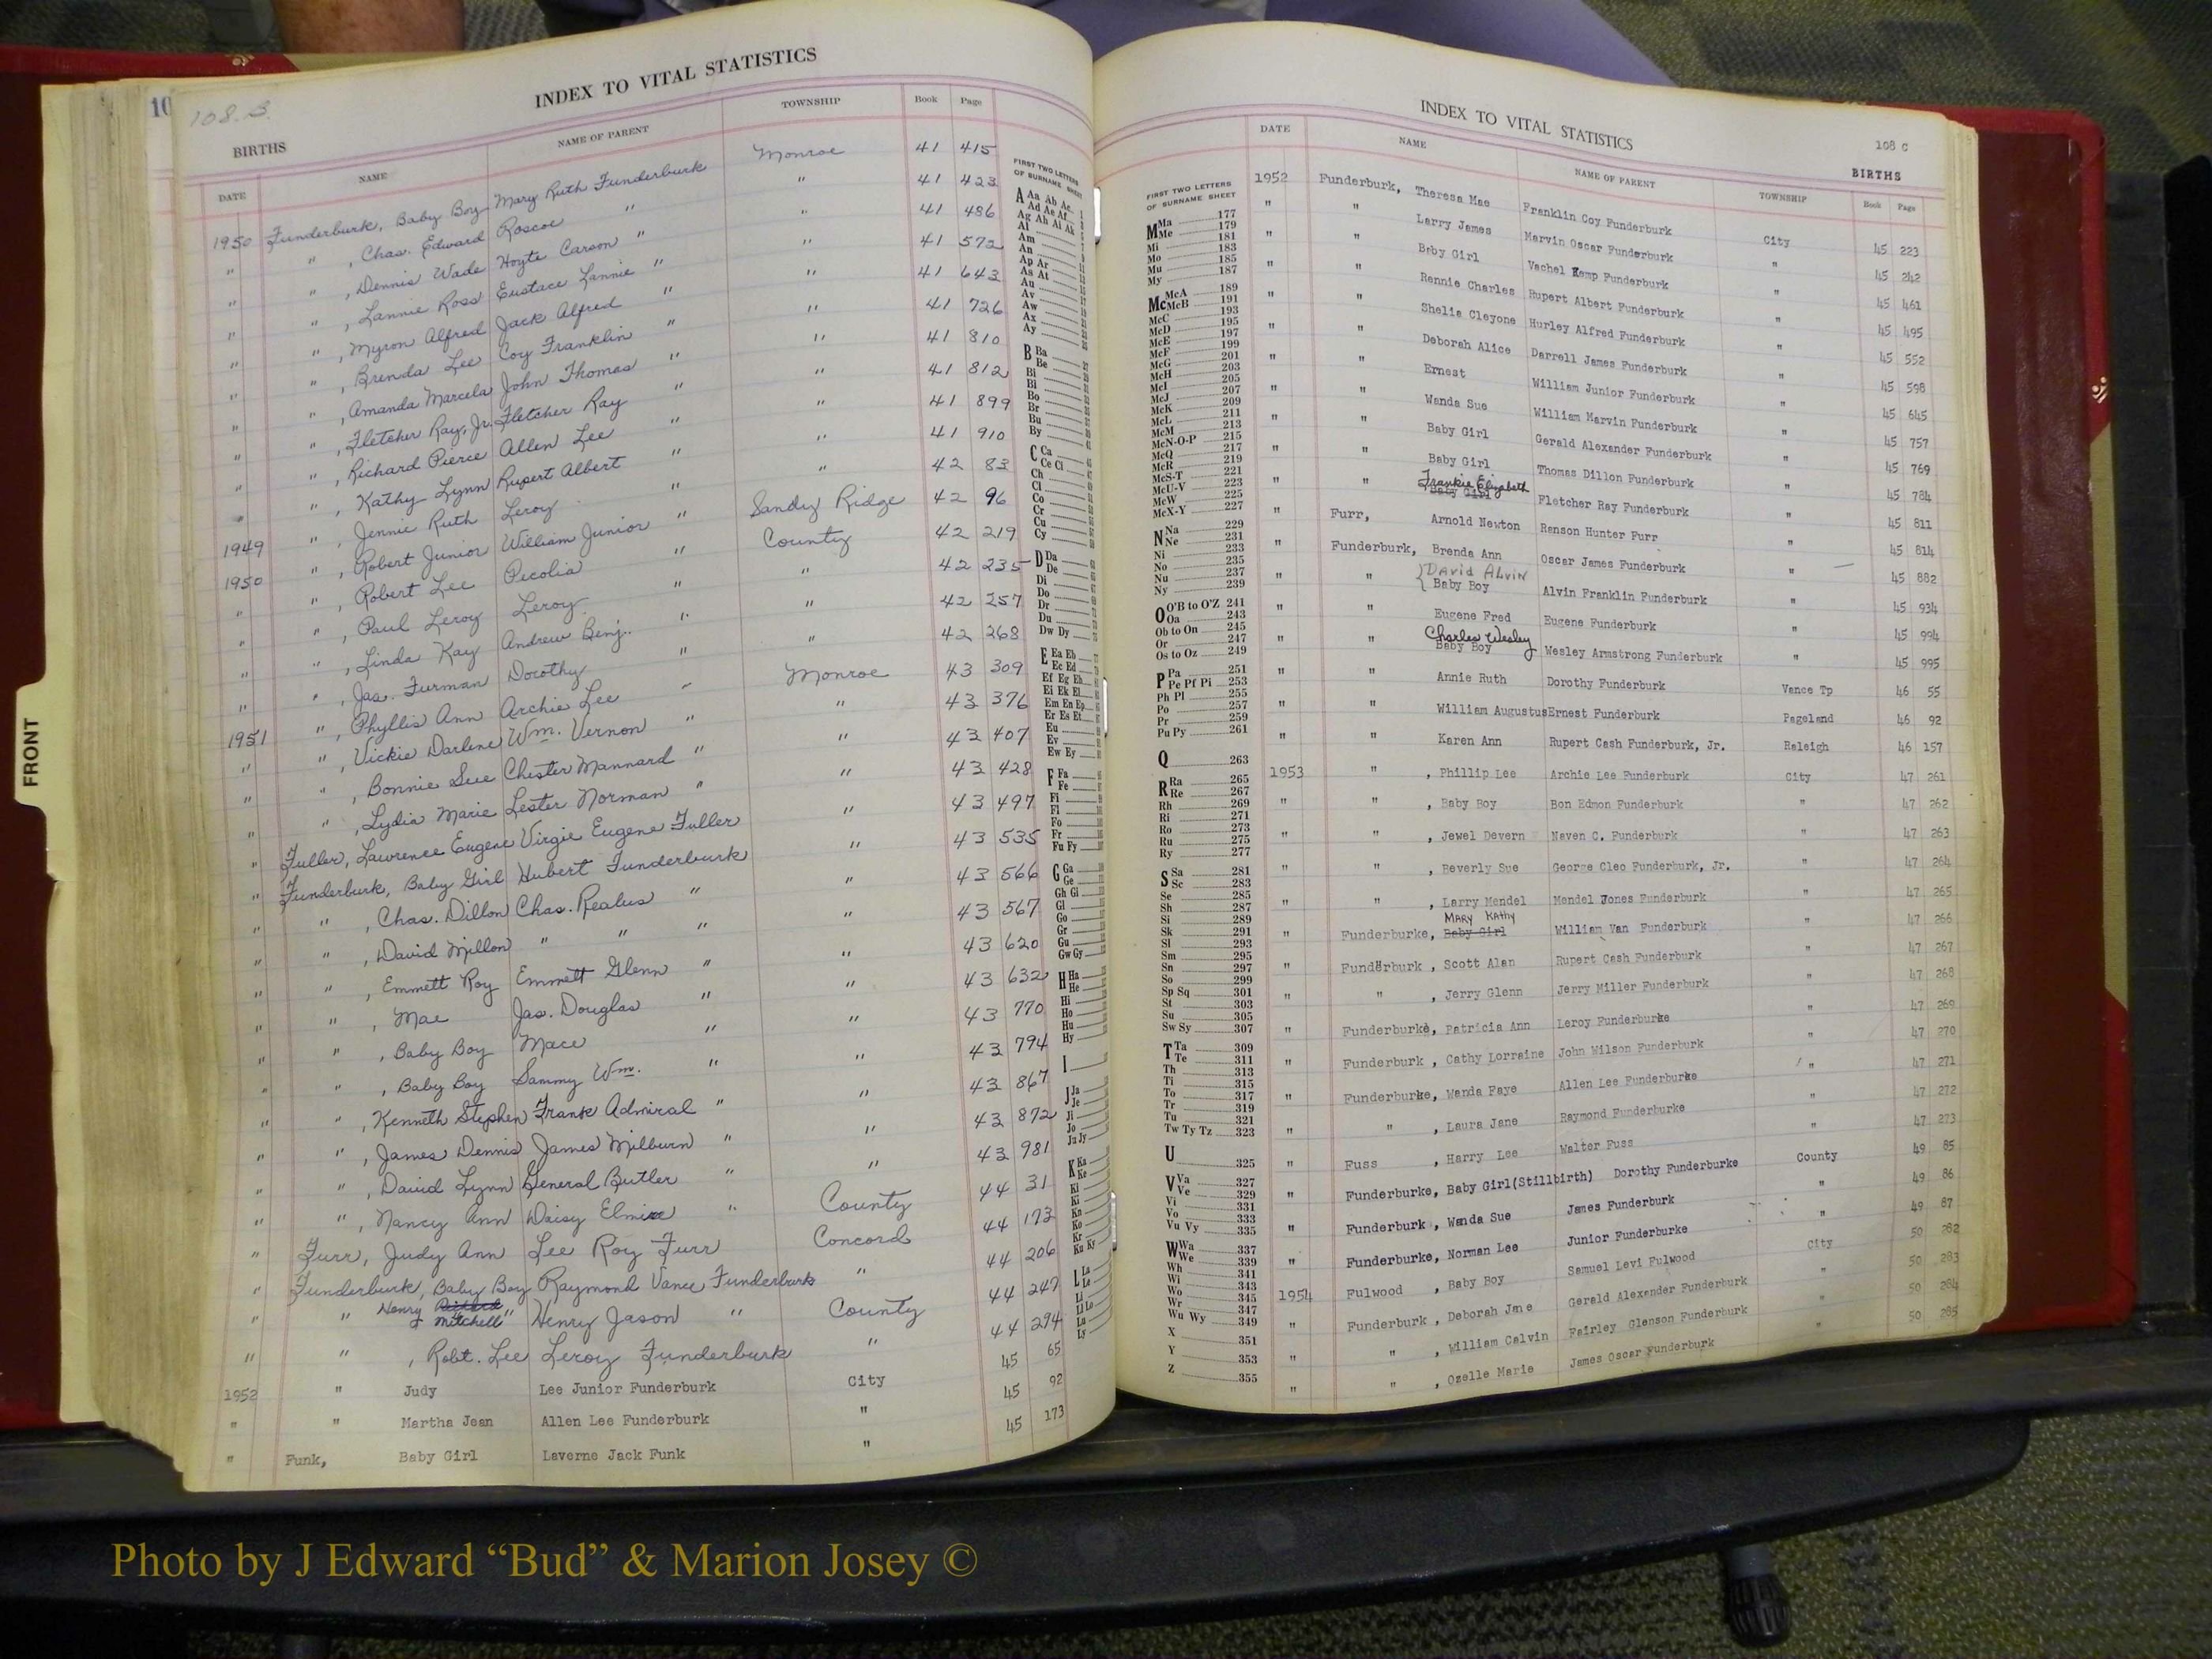 10
108.B.
INDEX TO VITAL STATISTICS
BIRTHS
DATE NAME NAME OF PARENT TOWNSHIP Book Page
1950 Funderburk, Baby Boy Mary Ruth Funderburk Monroe 41 415
" " , Chas. Edward Roscoe " " 41 423
" " , Dennis Wade Hoyte Carson " " 41 486
" " , Lannie Ross Eustace Lannie " " 41 572
" " , Myron Alfred Jack Alfred " " 41 643
" " , Brenda Lee Coy Franklin " " 41 726
" " , Amanda Marcela John Thomas " " 41 810
" " , Fletcher Ray, Jr. Fletcher Ray " " 41 812
" " , Richard Pierce Allen Lee " " 41 899
" " , Kathy Lynn Rupert Albert " " 41 910
" " , Jennie Ruth Leroy " " 42 83
1949 " , Robert Junior William Junior " Sandy Ridge 42 96
1950 " , Robert Lee Pecolia " County 42 219
" " , Paul Leroy Leroy " " 42 235
" " , Linda Kay Andrew Benj. " " 42 257
" " , Jas. Furman Dorothy " " 42 268
1951 " , Phyllis Ann Archie Lee " Monroe 43 309
" " , Vickie Darlene Wm. Vernon " " 43 376
" " , Bonnie Sue Chester Mannard " " 43 407
" " , Lydia Marie Lester Norman " " 43 428
" Fuller, Lawrence Eugene Virgie Eugene Fuller " 43 497
" Funderburk, Baby Girl Hubert Funderburk " 43 535
" " , Chas. Dillon Chas. Realus " " 43 566
" " , David Millon " " " " 43 567
" " , Emmett Roy Emmett Glenn " " 43 620
" " , Mae Jas. Douglas " " 43 632
" " , Baby Boy Mace " " 43 770
" " , Baby Boy Sammy Wm. " " 43 794
" " , Kenneth Stephen Frank Admiral " " 43 867
" " , James Dennis James Milburn " " 43 872
" " , David Lynn General Butler " " 43 981
" " , Nancy Ann Daisy Elmire " County 44 31
" Furr, Judy Ann Lee Roy Furr Concord 44 173
" Funderburk, Baby Boy Raymond Vance Funderburk " 44 206
" " Henry Mitchell Henry Jason " County 44 247
" " , Robt. Lee Leroy Funderburk " 44 294
1952 " Judy Lee Junior Funderburk City 45 65
" " Martha Jean Allen Lee Funderburk " 45 92
" Funk, Baby Girl Laverne Jack Funk " 45 173
FIRST TWO LETTERS
OF SURNAME SHEET
A Aa Ab Ac
Ad Ae Af
Ag Ah Ai Ak
Al
Am
An
Ap Ar
As At
Au
Av
Aw
Ax
Ay
B Ba
Be
Bi
Bl
Bo
Br
Bu
By
C Ca
Ce Ci
Ch
Cl
Co
Cr
Cu
Cy
D Da
De
Di
Do
Dr
Du
Dw Dy
E Ea Eb
Ec Ed
Ef Eg Eh
Ei Ek El
Em En Ep
Er Es Et
Eu
Ev
Ew Ey
F Fa
Fe
Fi
Fl
Fo
Fr
Fu Fy
G Ga
Ge
Gh Gi
Gl
Go
Gr
Gu
Gw Gy
H Ha
He
Hi
Ho
Hu
Hy
I
J Ja
Je
Ji
Jo
Ju Jy
K Ka
Ke
Ki
Kl
Kn
Ko
Kr
Ku Ky
L La
Le
Li
Ll Lo
Lu
Ly
FRONT
INDEX TO VITAL STATISTICS
108 C
BIRTHS
DATE NAME NAME OF PARENT TOWNSHIP Book Page
FIRST TWO LETTERS
OF SURNAME SHEET
M Ma 177
Me 179
Mi 181
Mo 183
Mu 185
My 187
Mc McA 189
McB 191
McC 193
McD 195
McE 197
McF 199
McG 201
McH 203
McI 205
McJ 207
McK 209
McL 211
McM 213
McN-O-P 215
McQ 217
McR 219
McS-T 221
McU-V 223
McW 225
McX-Y 227
N Na 229
Ne 231
Ni 233
No 235
Nu 237
Ny 239
O O'B to O'Z 241
Oa 243
Ob to On 245
Or 247
Os to Oz 249
P Pa 251
Pe Pf Pi 253
Ph Pl 255
Po 257
Pr 259
Pu Py 261
Q 263
R Ra 265
Re 267
Rh 269
Ri 271
Ro 273
Ru 275
Ry 277
S Sa 281
Sc 283
Se 285
Sh 287
Si 289
Sk 291
Sl 293
Sm 295
Sn 297
So 299
Sp Sq 301
St 303
Su 305
Sw Sy 307
T Ta 309
Te 311
Th 313
Ti 315
To 317
Tr 319
Tu 321
Tw Ty Tz 323
U 325
V Va 327
Ve 329
Vi 331
Vo 333
Vu Vy 335
W Wa 337
We 339
Wh 341
Wi 343
Wo 345
Wr 347
Wu Wy 349
X 351
Y 353
Z 355
1952 Funderburk, Theresa Mae Franklin Coy Funderburk City 45 223
" " Larry James Marvin Oscar Funderburk " 45 242
" " Baby Girl Vachel Kemp Funderburk " 45 461
" " Rennie Charles Rupert Albert Funderburk " 45 495
" " Shelia Cleyone Hurley Alfred Funderburk " 45 552
" " Deborah Alice Darrell James Funderburk " 45 598
" " Ernest William Junior Funderburk " 45 645
" " Wanda Sue William Marvin Funderburk " 45 757
" " Baby Girl Gerald Alexander Funderburk " 45 769
" " Baby Girl Thomas Dillon Funderburk " 45 784
" " Frankie Elizabeth Baby Girl Fletcher Ray Funderburk " 45 811
" Furr, Arnold Newton Ranson Hunter Furr " 45 814
" Funderburk, Brenda Ann Oscar James Funderburk " 45 882
" " David Alvin Baby Boy Alvin Franklin Funderburk " 45 934
" " Eugene Fred Eugene Funderburk " 45 994
" " Charles Wesley Baby Boy Wesley Armstrong Funderburk " 45 995
" " Annie Ruth Dorothy Funderburk Vance Tp 46 55
" " William Augustus Ernest Funderburk Pageland 46 92
" " Karen Ann Rupert Cash Funderburk, Jr. Raleigh 46 157
1953 " , Phillip Lee Archie Lee Funderburk City 47 261
" " , Baby Boy Bon Edmon Funderburk " 47 262
" " , Jewel Devern Neven C. Funderburk " 47 263
" " , Beverly Sue George Cleo Funderburk, Jr. " 47 264
" " , Larry Mendel Mendel Jones Funderburk " 47 265
" Funderburke, Mary Kathy Baby Girl William Van Funderburk " 47 266
" Funderburk , Scott Alan Rupert Cash Funderburk " 47 267
" " , Jerry Glenn Jerry Miller Funderburk " 47 268
" Funderburke, Patricia Ann Leroy Funderburke " 47 269
" Funderburk , Cathy Lorraine John Wilson Funderburk " 47 270
" Funderburke, Wanda Faye Allen Lee Funderburke " 47 271
" " , Laura Jane Raymond Funderburke " 47 272
" Fuss , Harry Lee Walter Fuss " 47 273
" Funderburke, Baby Girl(Stillbirth) Dorothy Funderburke County 49 85
" Funderburk , Wanda Sue James Funderburk " 49 86
" Funderburke, Norman Lee Junior Funderburke " 49 87
1954 Fulwood , Baby Boy Samuel Levi Fulwood City 50 282
" Funderburk , Deborah Jane Gerald Alexander Funderburk " 50 283
" " , William Calvin Fairley Glenson Funderburk " 50 284
" " , Ozelle Marie James Oscar Funderburk " 50 285
Photo by J Edward “Bud” & Marion Josey ©